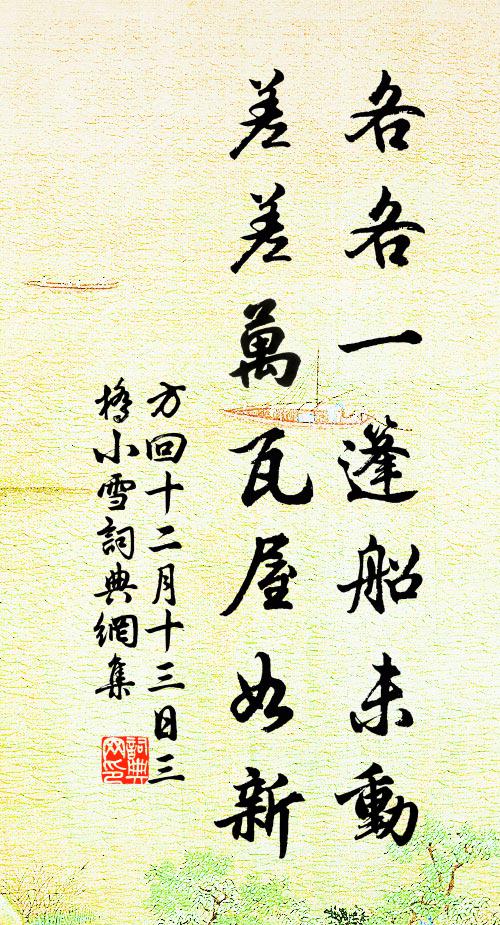 各各一蓬船未動
差差萬瓦屋如新
方回十二月十三日三
橋小雪詞典網集
詞典網印